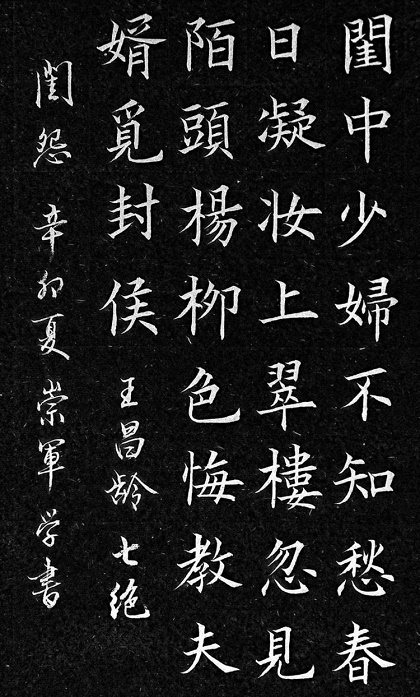 閨中少婦不知愁春
日凝妆上翠樓忽見
陌頭楊柳色悔教夫
婿覓封侯 王昌龄七绝
閨怨 辛卯夏 崇軍学書